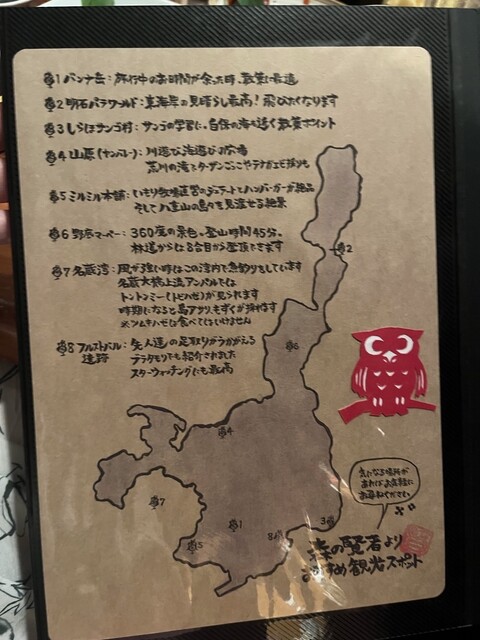 1 バンナ岳：旅行中のお時間が余った時、散策に最適
2 明石パラワールド：東海岸の見晴らし最高！飛びたくなります
3 しらほサンゴ村：サンゴの学習に。白保の海を近く散策ポイント
4 山原(ヤンバレー)：川遊び 海遊びの穴場
荒川の滝でターザンごっこやテナガエビ採りも
5 ミルミル本舗：いもり牧場直営のジェラートとハンバーガーが絶品
そして八重山の島々を見渡せる絶景
6 野底マーペー：360度の景色。登山時間45分。
林道からは8合目から登頂できます
7 名蔵湾：風が強い時はこの湾内で魚釣りをしています
名蔵大橋上流アンパルでは
トントンミー(トビハゼ)が見られます
時期になると島アサリ、もずくが採れます
※ツムギハゼは食べてはいけません
8 フルストバル：先人達の足取りがうかがえる
遺跡
テラタモリでも紹介されました
スターウォッチングにも最高
2
6
4
7
1
5
8
3
気になる場所が
あればお気軽に
お尋ねください
森の賢者より
おすすめ観光スポット